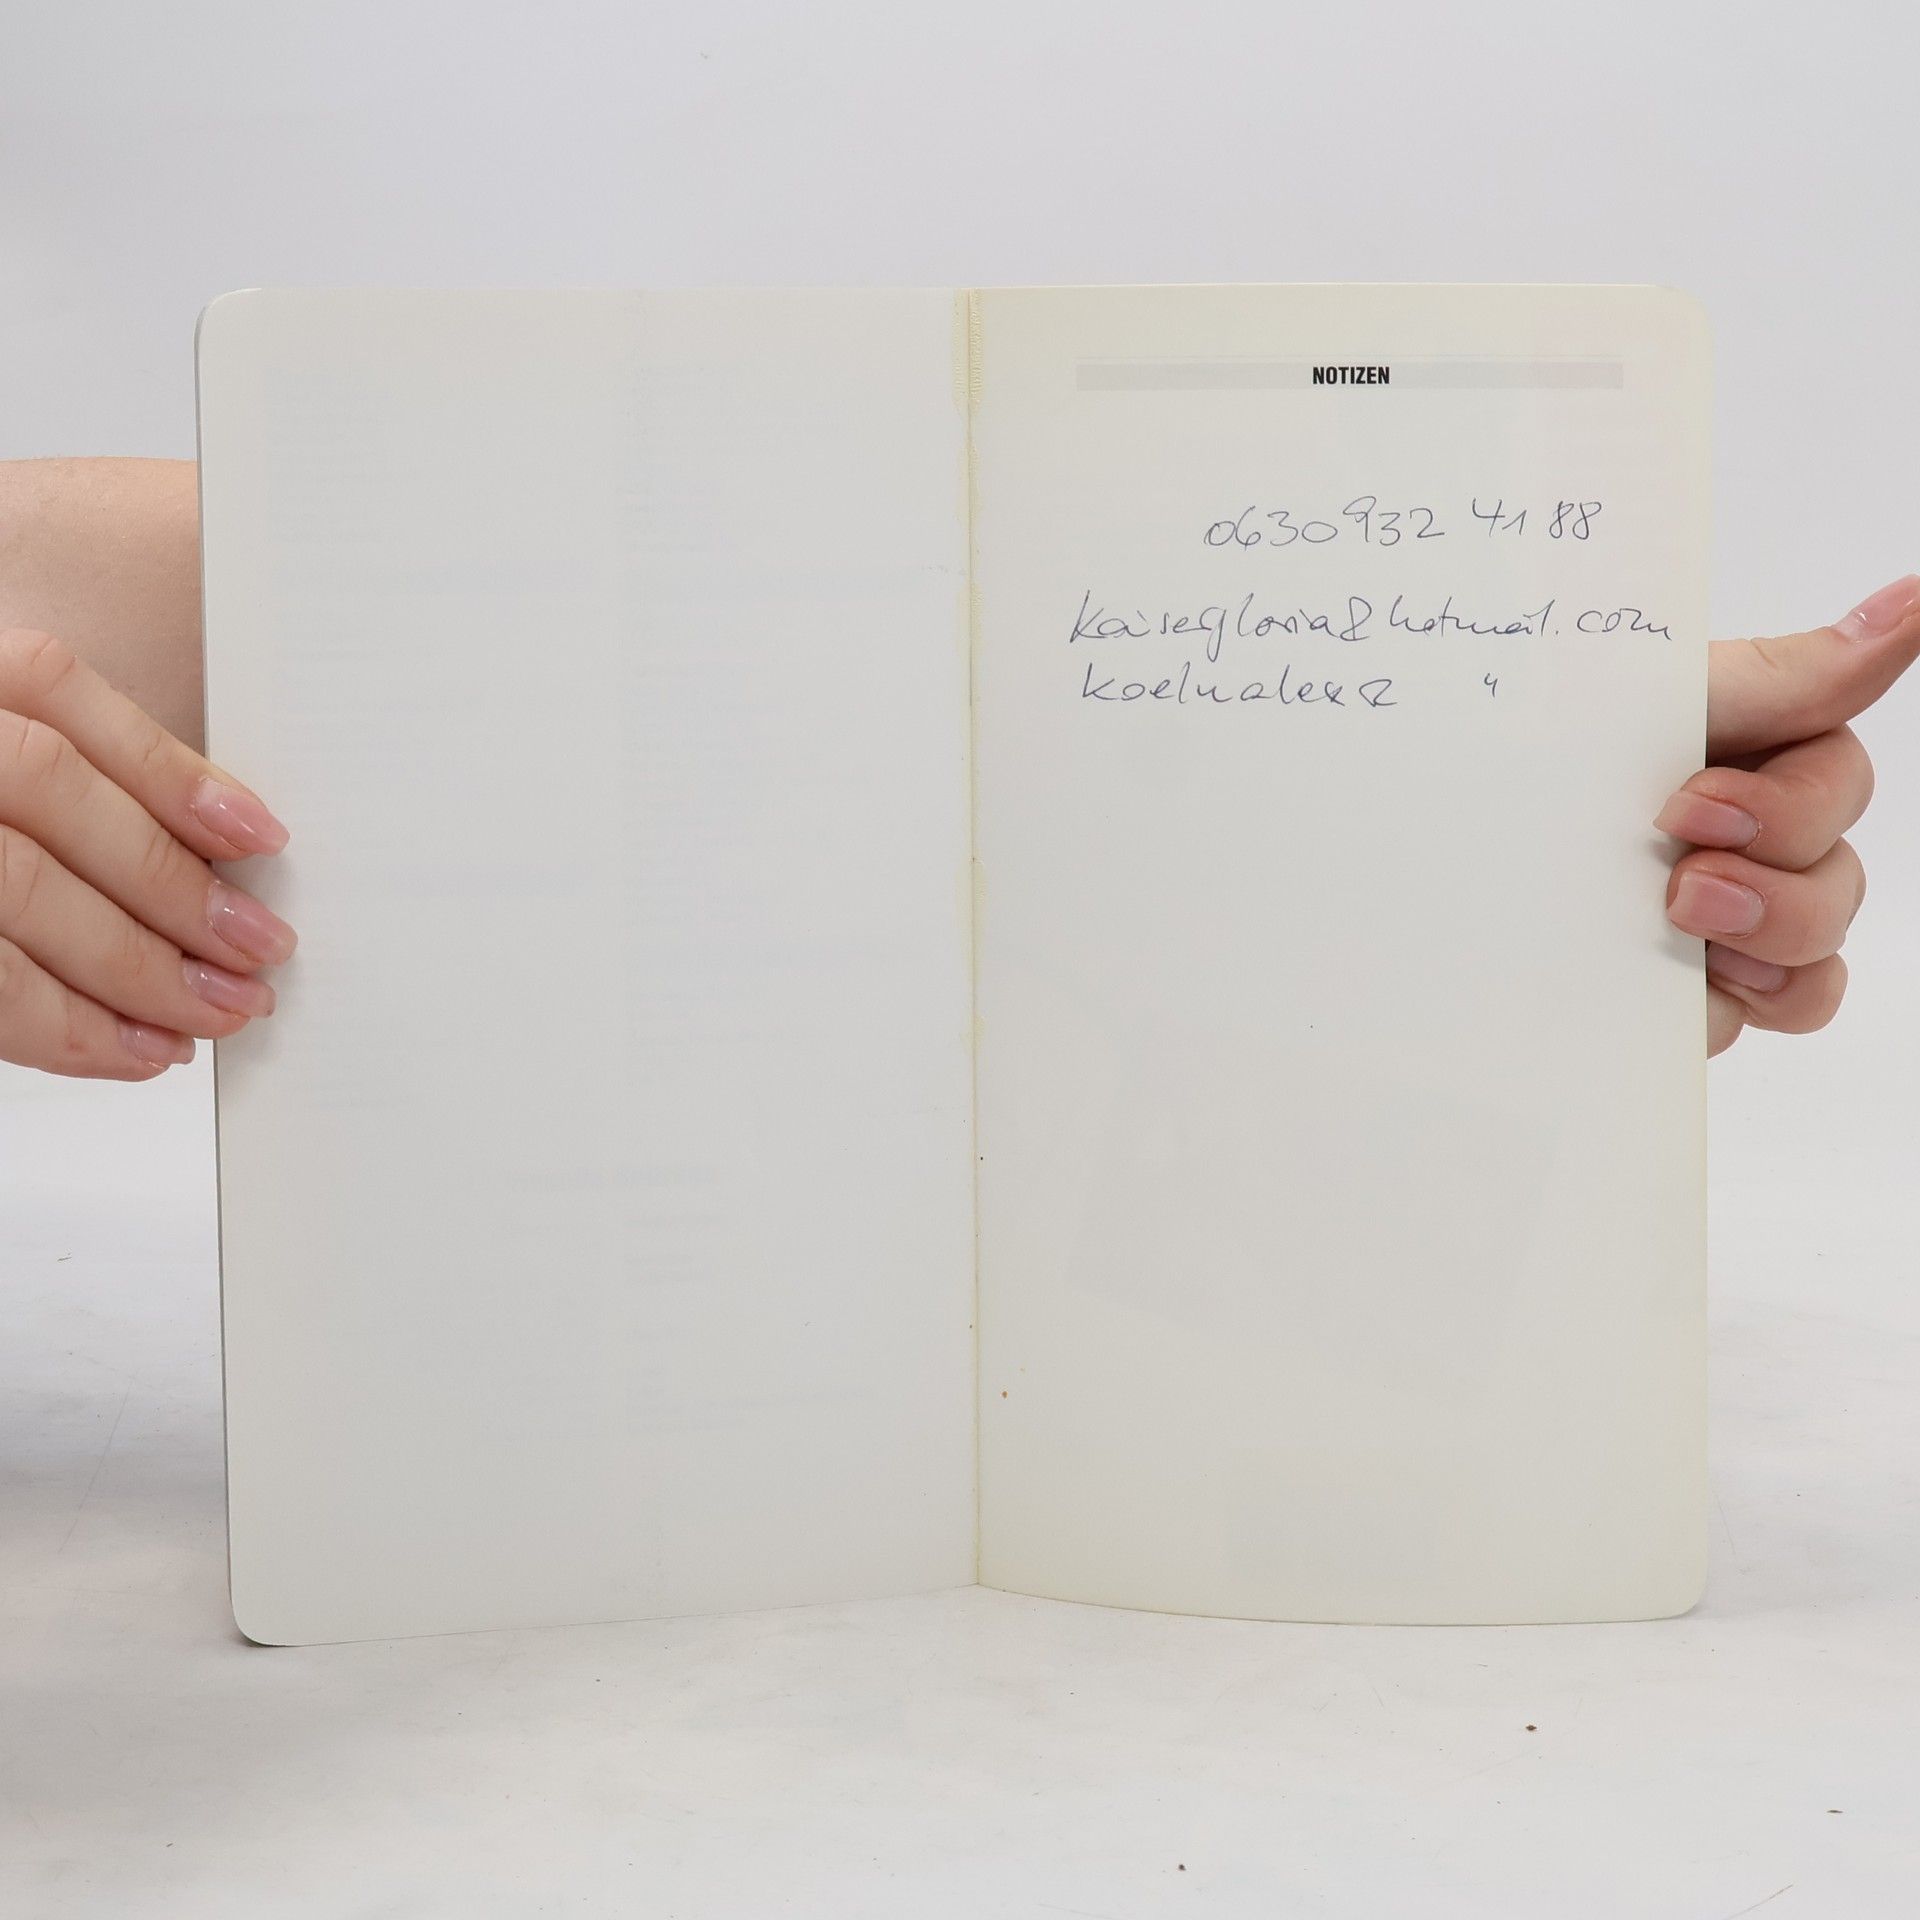 NOTIZEN
0630 932 41 88
kaisergloria@hotmail.com
koelnalex@ "